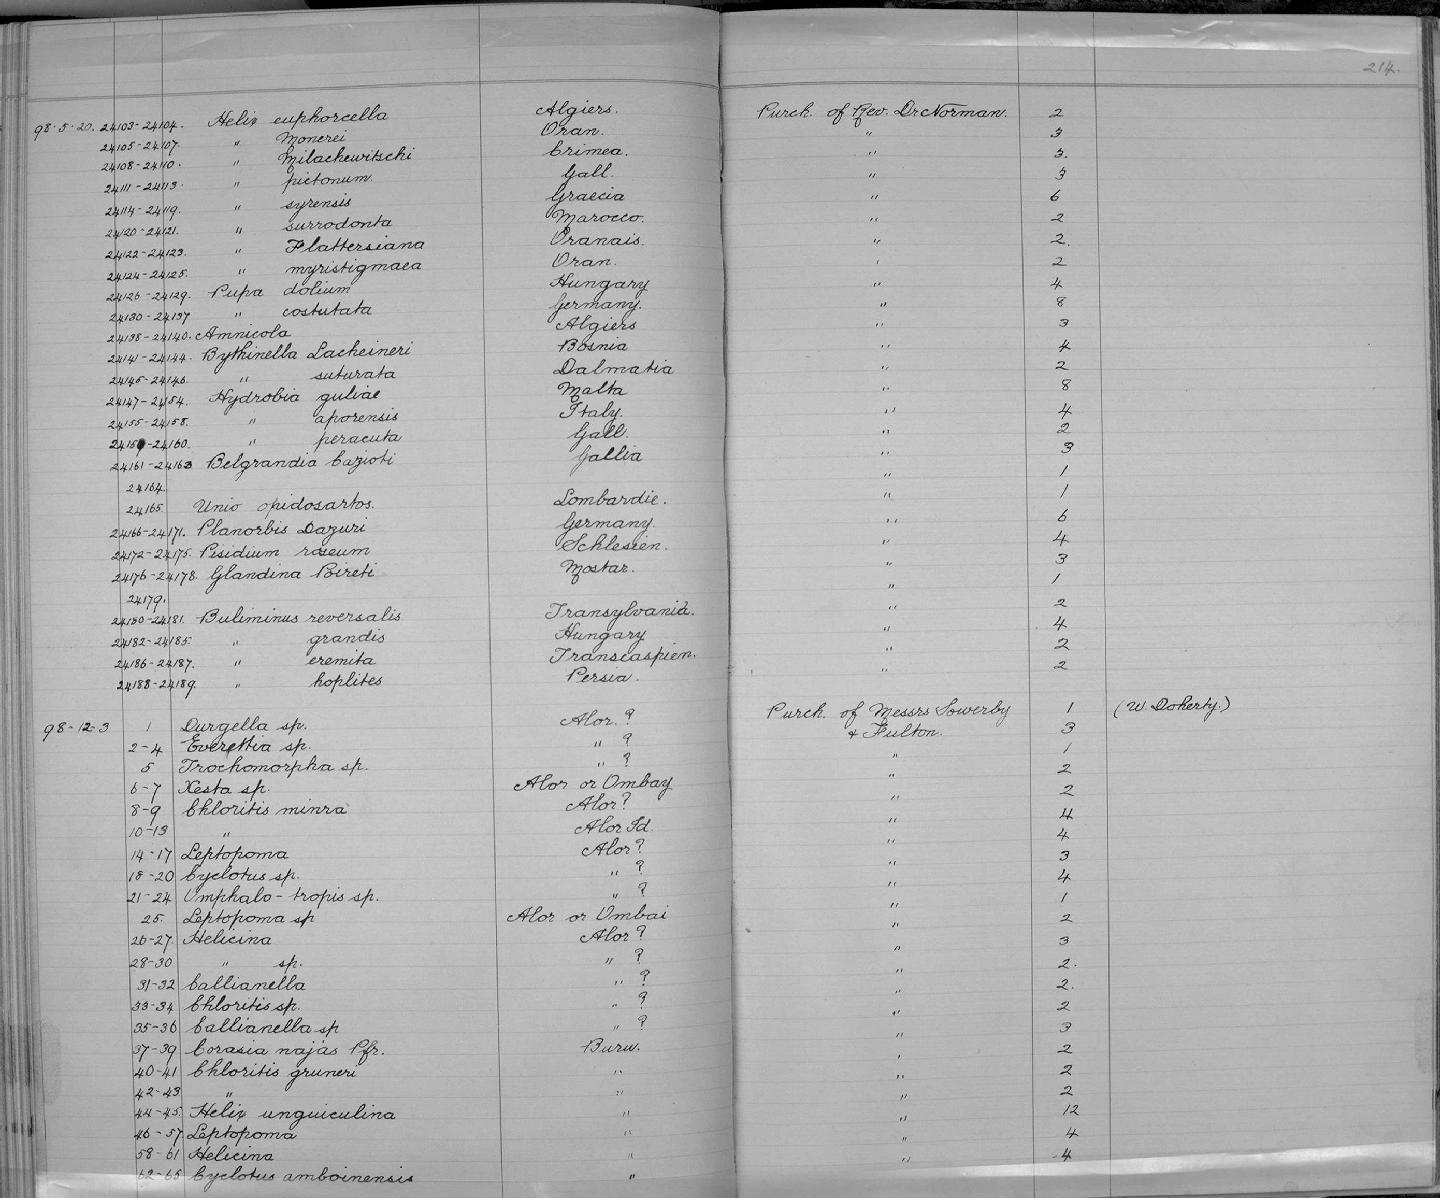 214.
98-5-20. 24103-24104. Helix euphorcella Algiers. Purch. of Rev. Dr Norman. 2
24105-24107. " Monerei Oran. " 3
24108-24110. " Milachewitschi Crimea. " 3.
24111-24113. " pictonum. Gall. " 3
24114-24119. " syrensis Graecia " 6
24120-24121. " surrodonta Marocco. " 2
24122-24123. " Flattersiana Oranais. " 2.
24124-24125. " myristigmaea Oran. " 2
24126-24129. Pupa dolium Hungary " 4
24130-24137 " costutata Germany. " 8
24138-24140. Amnicola Algiers " 3
24141-24144. Bythinella Lacheineri Bosnia " 4
24145-24146. " suturata Dalmatia " 2
24147-24154. Hydrobia guliae Malta " 8
24155-24158. " aporensis Italy. " 4
24159-24160. " peracuta Gall. " 2
24161-24163 Belgrandia Cazioti Gallia " 3
24164. " 1
24165. Unio opidosartos. Lombardie. " 1
24166-24171. Planorbis Dazuri Germany. " 6
24172-24175. Pisidium roseum Schlesien. " 4
24176-24178. Glandina Poireti Mostar. 3
24179. " 1
24180-24181. Buliminus reversalis Transylvania. " 2
24182-24185. " grandis Hungary " 4
24186-24187. " eremita Transcaspien. " 2
24188-24189. " hoplites Persia. " 2
98-12-3 1 Durgella sp. Alor. ? Purch. of Messrs Sowerby 1 (W. Doherty.)
2-4 Everettia sp. " ? & Fulton. 3
5 Trochomorpha sp. " ? " 1
6-7 Xesta sp. Alor or Ombay " 2
8-9 Chloritis minra Alor? " 2
10-13 " Alor Id. " 4
14-17 Leptopoma Alor? " 4
18-20 Cyclotus sp. " ? " 3
21-24 Omphalo-tropis sp. " ? " 4
25. Leptopoma sp Alor or Ombai " 1
26-27. Helicina Alor? " 2
28-30 " sp. " ? " 3
31-32 Callianella " ? " 2.
33-34 Chloritis sp. " ? " 2.
35-36 Callianella sp " ? " 2
37-39 Corasia najas Pfr. Buru. " 3
40-41 Chloritis gruneri " " 2
42-43 " " " 2
44-45. Helix unguiculina " " 2
46-57 Leptopoma " " 12
58-61 Helicina " " 4
62-65 Cyclotus amboinensis " " 4